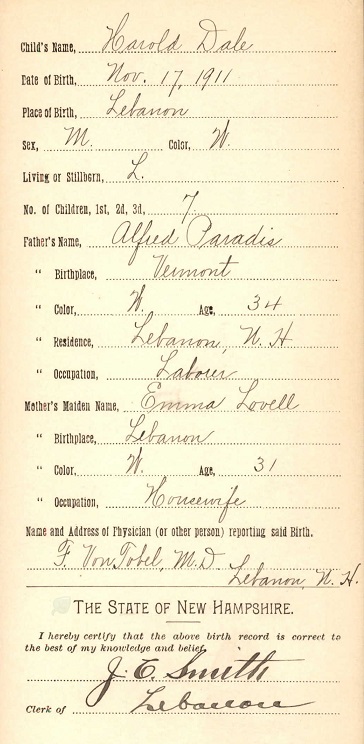 Child's Name, Harold Dale
Date of Birth, Nov. 17, 1911
Place of Birth, Lebanon
Sex, M. Color, W.
Living or Stillborn, L.
No. of Children, 1st, 2d, 3d, 7
Father's Name, Alfred Paradis
" Birthplace, Vermont
" Color, W. Age, 34
" Residence, Lebanon, N. H
" Occupation, Laborer
Mother's Maiden Name, Emma Lovell
" Birthplace, Lebanon
" Color, W. Age, 31
" Occupation, Housewife
Name and Address of Physician (or other person) reporting said Birth.
F. Von Tobel, M.D.
Lebanon, N. H.
THE STATE OF NEW HAMPSHIRE.
I hereby certify that the above birth record is correct to
the best of my knowledge and belief.
J. E. Smith
Clerk of Lebanon